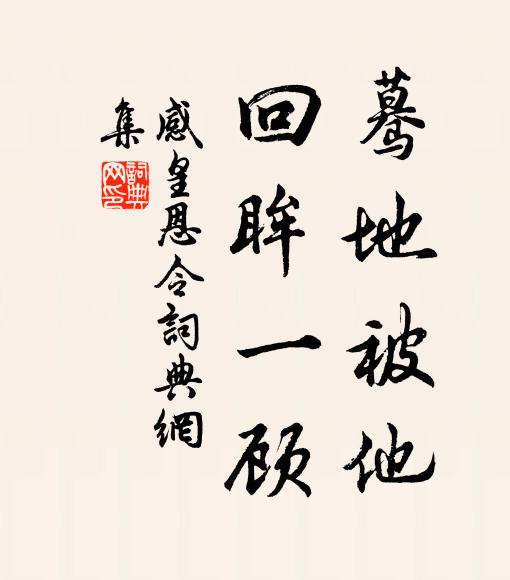 蓦地被他
回眸一顾
感皇恩令詞典網
集
詞典网印